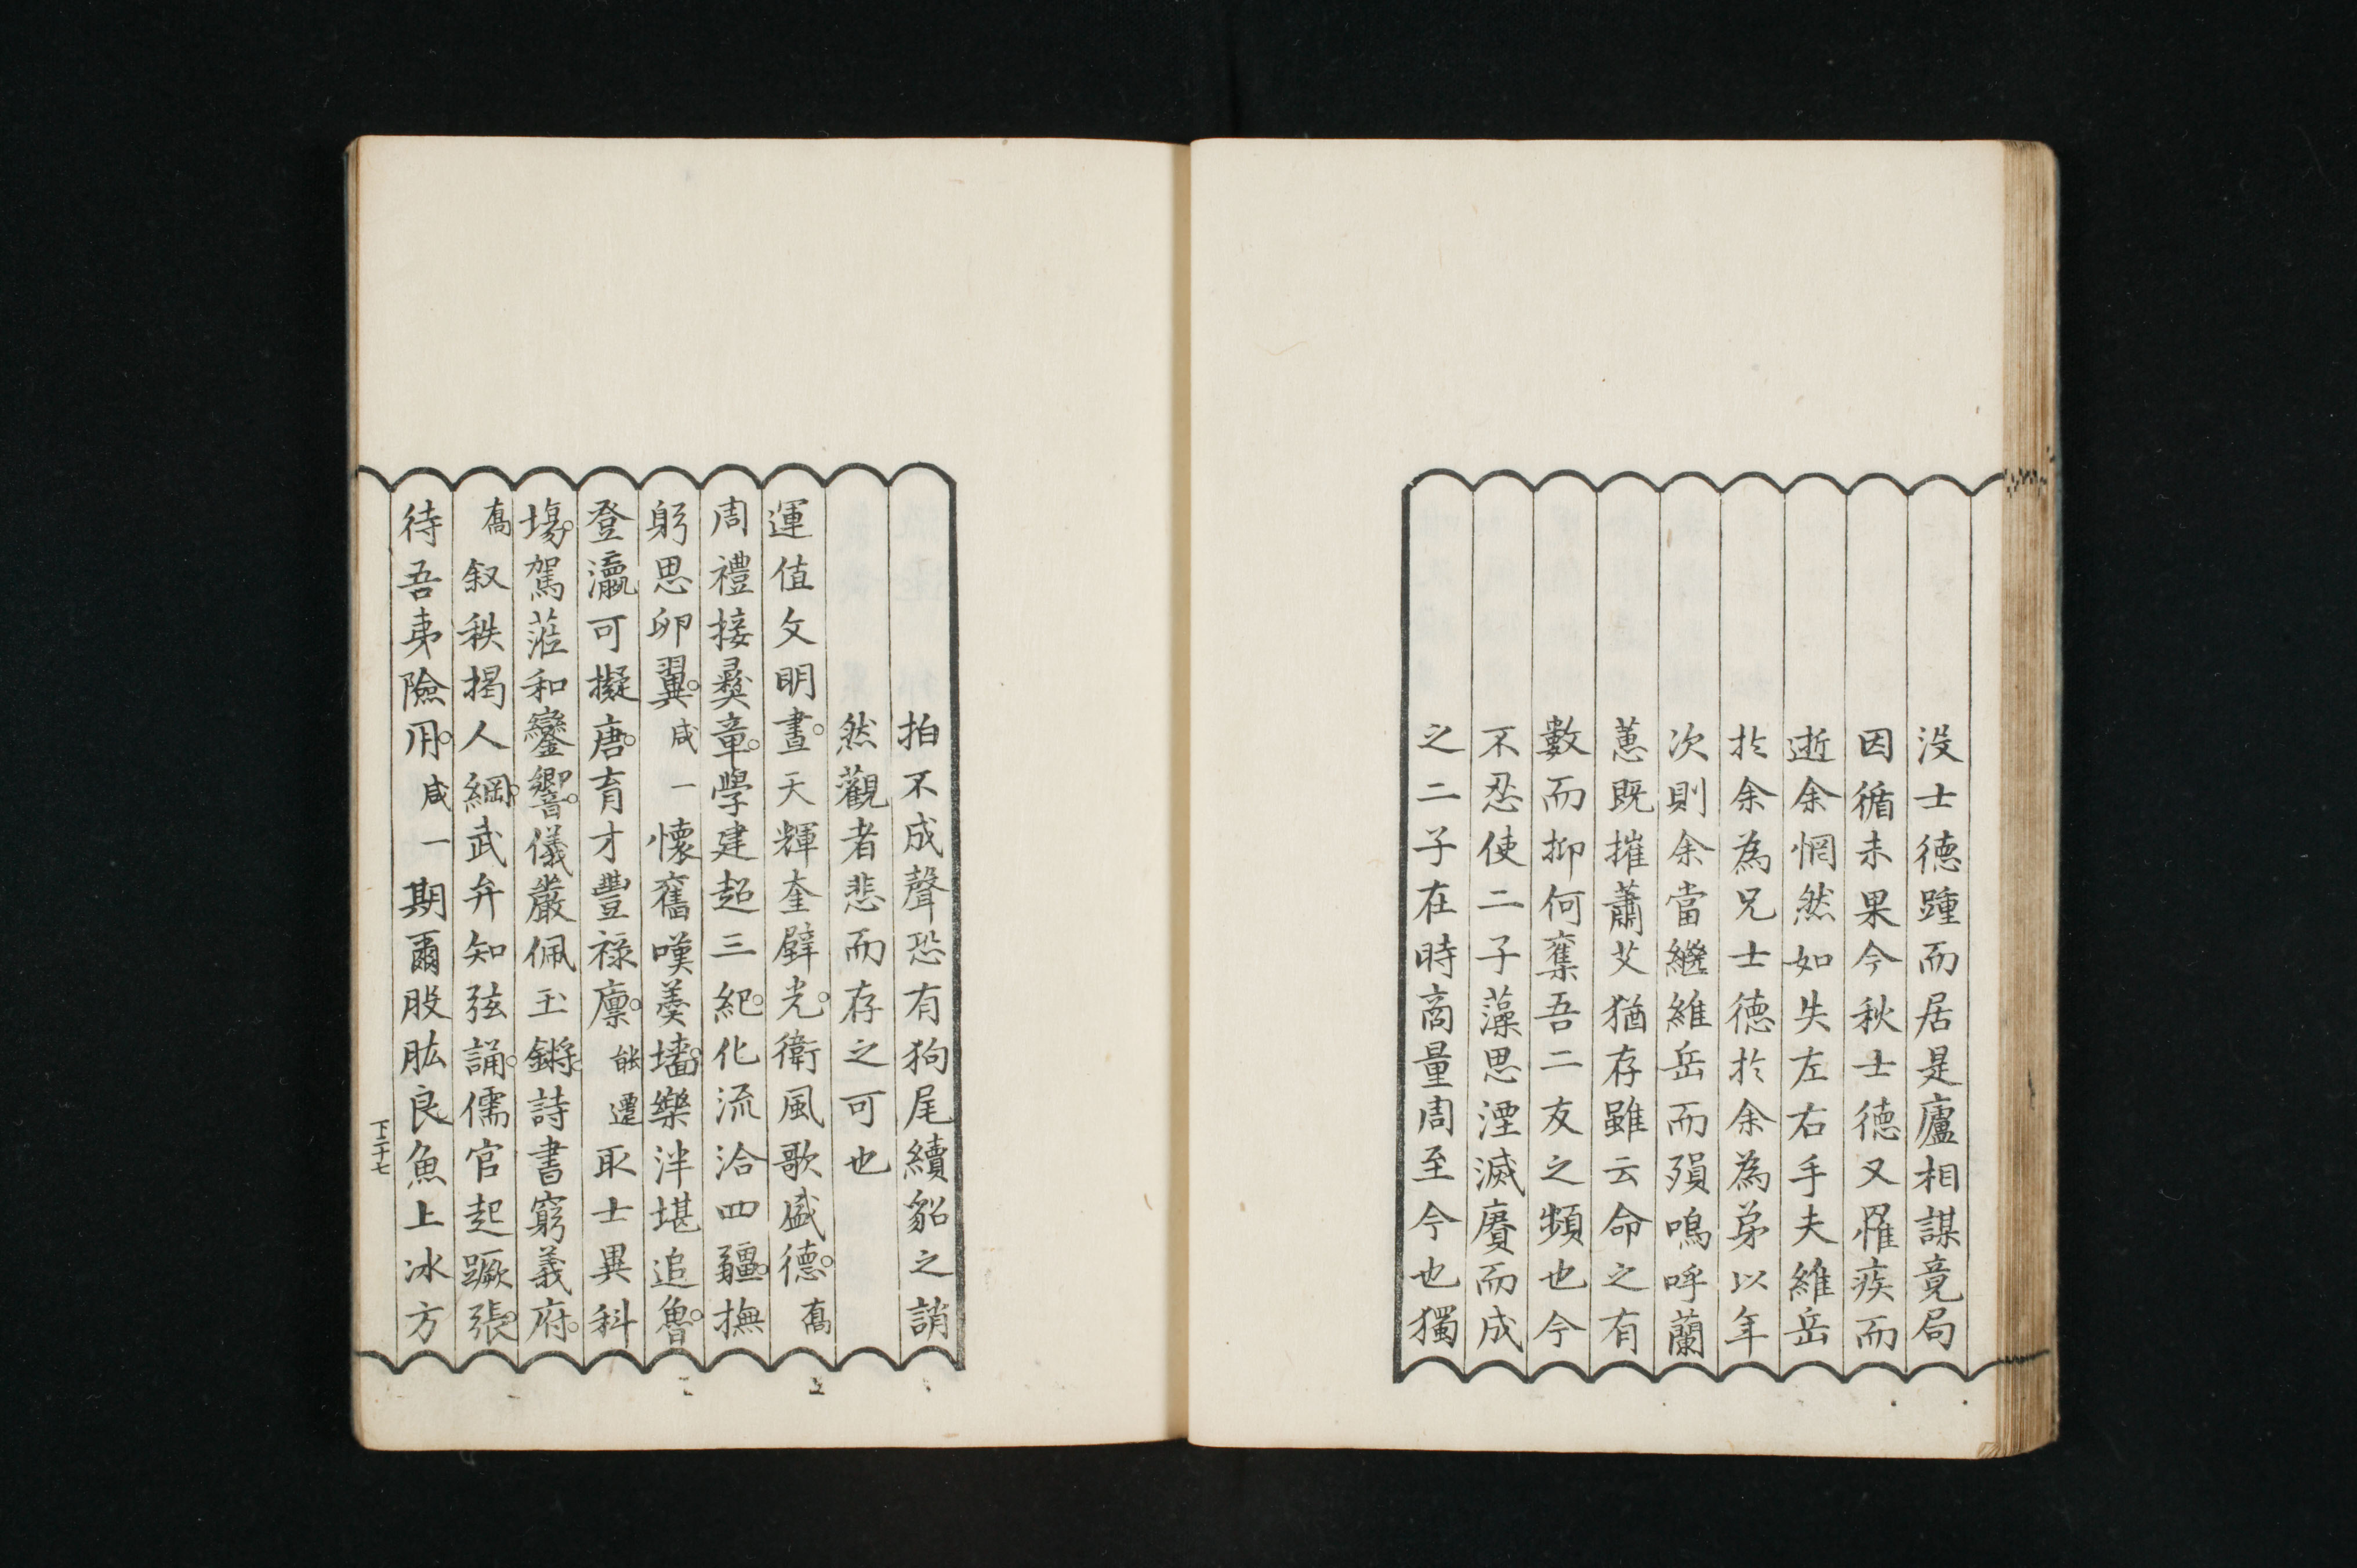 没士徳踵而居是廬相謀竟局
因循未果今秋士徳又罹疾而
逝余惘然如失左右手夫維岳
於余為兄士徳於余為弟以年
次則余當繼維岳而殞嗚呼蘭
蕙既摧蕭艾猶存雖云命之有
數而抑何奪吾二友之頻也今
不忍使二子藻思湮滅賡而成
之二子在時商量周至今也獨
拍不成聲恐有狗尾續貂之誚
然觀者悲而存之可也
運值文明晝天輝奎壁光衛風歌盛徳喬
周禮接彛章學建超三紀化流洽四疆撫
躬思卵翼咸一懷舊嘆羹墻樂泮堪追魯
登瀛可擬唐育才豐禄廩能遷取士異科
塲駕蒞和鑾響儀嚴佩玉鏘詩書窮義府
喬叙秩揭人綱武弁知弦誦儒官起蹶張
待吾夷險用咸一期爾股肱良魚上冰方
下二十七